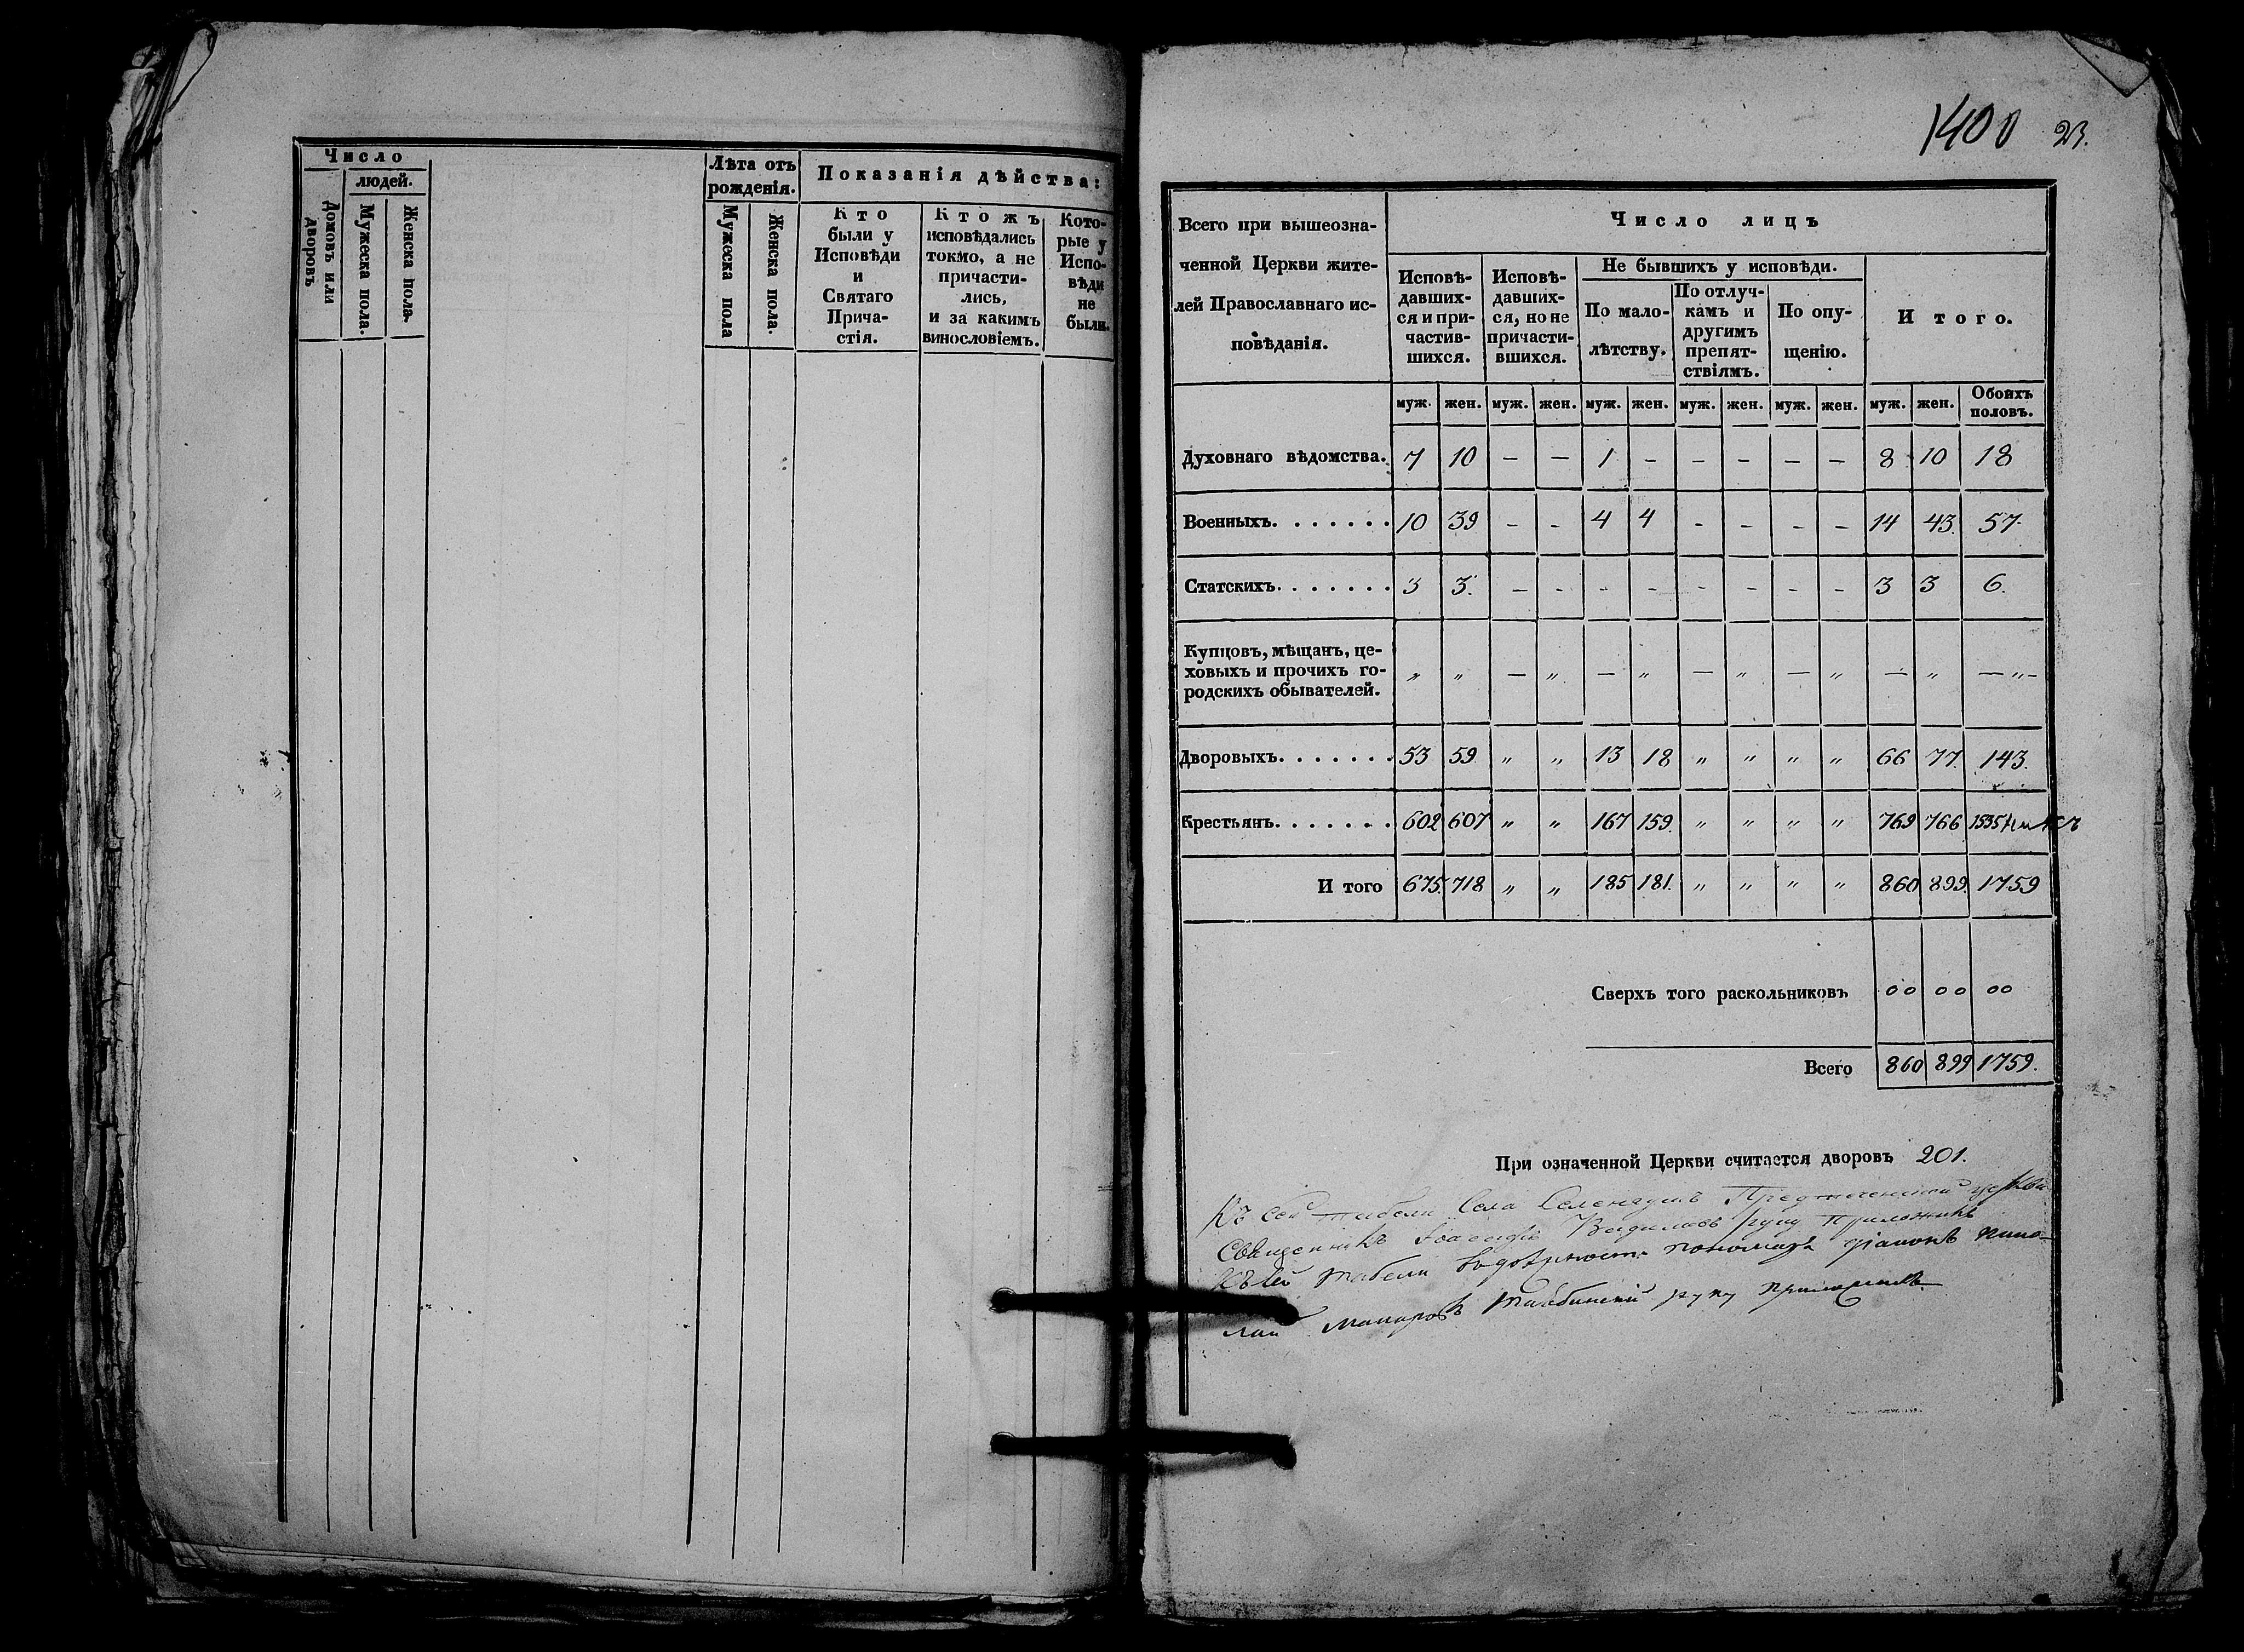 Число
людей.
Домовъ или
дворовъ
Мужеска пола.
Женска пола.
Лѣта отъ
рожденія.
Мужеска пола
Женска пола.
Показанія дѣйства:
Кто
были у
Исповѣди
и
Святаго
Прича-
стія.
Ктожъ
исповѣдались
токмо, а не
причасти-
лись,
и за какимъ
винословіемъ.
Кото-
рые у
Испо-
вѣди
не
были.
1400 23.
Всего при вышеозна-
ченной Церкви жите-
лей Православнаго ис-
повѣданія.
Число лицъ
Исповѣ-
давших-
ся и при-
частив-
шихся.
Исповѣ-
давших-
ся, но не
причасти-
вшихся.
Не бывшихъ у исповѣди.
По мало-
лѣтству.
По отлуч-
камъ и
другимъ
препят-
ствіямъ.
По опу-
щенію.
И того.
муж. жен. муж. жен. муж. жен. муж. жен. муж. жен. муж. жен. Обоихъ
половъ.
Духовнаго вѣдомства. 7 10 — — 1 – – – – — 8 10 18
Военныхъ. . . . . . . 10 39 – – 4 4 – – – – 14 43. 57.
Статскихъ. . . . . . . 3 3. – – – – – – – – 3 3 6.
Купцовъ, мѣщанъ, це-
ховыхъ и прочихъ го-
родскихъ обывателей. „ „ — „ — „ — „ — „ — „ — „ –
Дворовыхъ. . . . . . . 53 59. „ „ 13 18 „ „ „ „ 66 77. 143.
Крестьянъ. . . . . . . 602 607 „ „ 167 159. „ „ „ „ 769 766 1535
И того 675. 718 „ „ 185 181. „ „ „ „ 860 899. 1759
Сверхъ того раскольниковъ 00 00 00
Всего 860 899 1759.
При означенной Церкви считается дворовъ 201.
Къ сей табели Села Предтеченской церкви
Священникъ руку Приложилъ
Къ сей табели пономаря
Макаровъ руку приложилъ